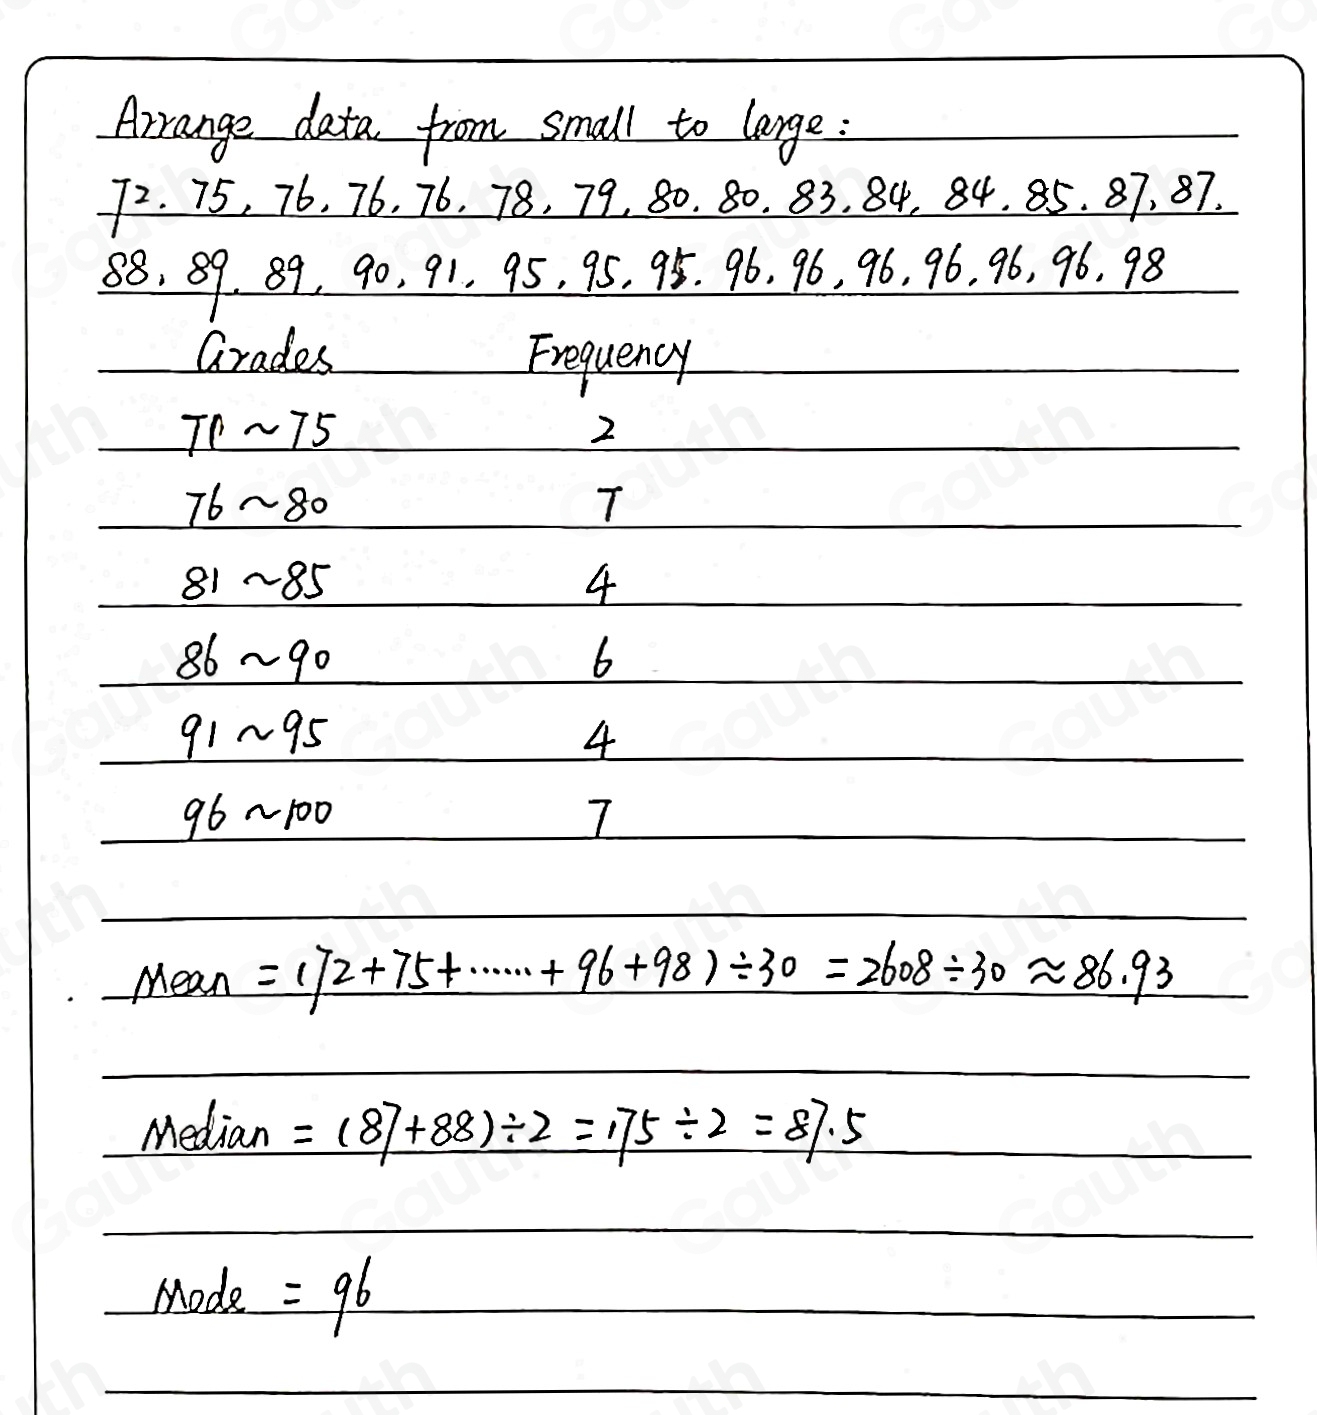 Arrange data from small to large:
72. 75, 76, 76. 76. 78, 79, 80. 80. 83. 84, 84. 85. 87, 87.
88, 89, 89, 90, 91. 95, 95, 95. 96. 96, 96, 96. 96, 96. 98
Grades Frequency
71 ~ 75 2
76 ~ 80 7
81 ~ 85 4
86 ~ 90 6
91 ~ 95 4
96 ~ 100 7
Mean = (72+75+......+96+98)÷30 = 2608÷30 ≈ 86.93
Median = (87+88)÷2 = 175÷2 = 87.5
Mode = 96